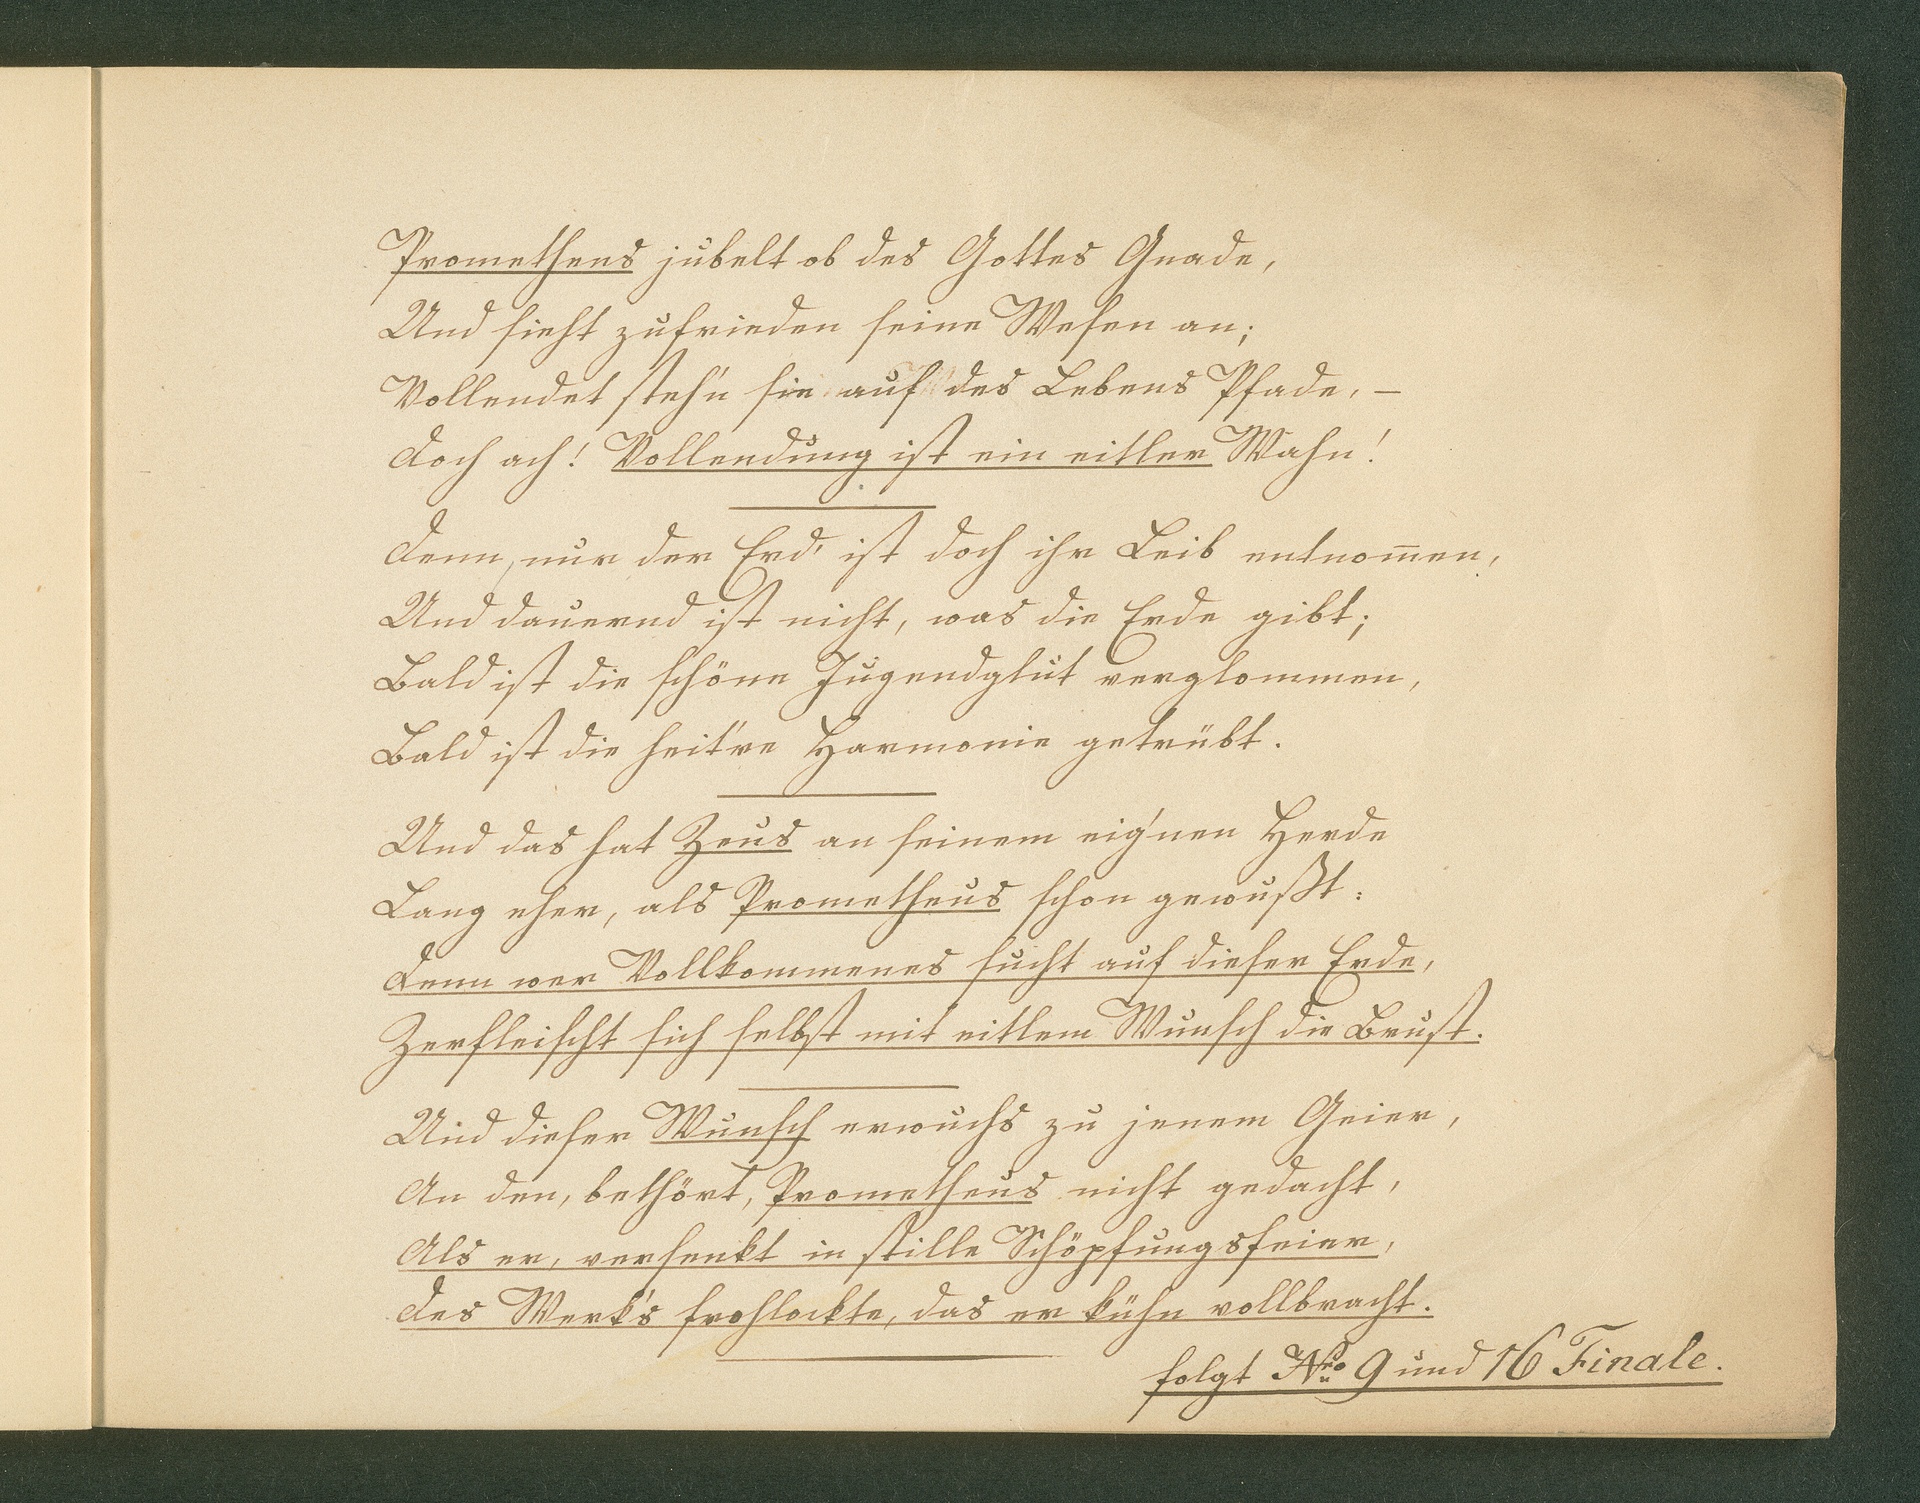 Prometheus jubelt ob des Gottes Gnade,
Und sieht zufrieden seine Wesen an;
Vollendet steh'n sie auf des Lebens Pfade, –
Doch ach! Vollendung ist ein eitler Wahn!
Denn, nur der Erd' ist doch ihr Leib entnom̄en,
Und dauernd ist nicht, was die Erde gibt;
Bald ist die schöne Jugendglut verglommen,
Bald ist die heit're Harmonie getrübt.
Und das hat Zeus an seinem eig'nen Herde
Lang eher, als Prometheus schon gewußt:
Denn wer Vollkommenes sucht auf dieser Erde,
Zerfleischt sich selbst mit eitlem Wunsch die Brust.
Und dieser Wunsch erwuchs zu jenem Geier,
An den, bethört, Prometheus nicht gedacht,
Als er, versenkt in stille Schöpfungsfeier,
Des Werk's frohlockte, das er kühn vollbracht.
folgt Nro 9 und 16 Finale.